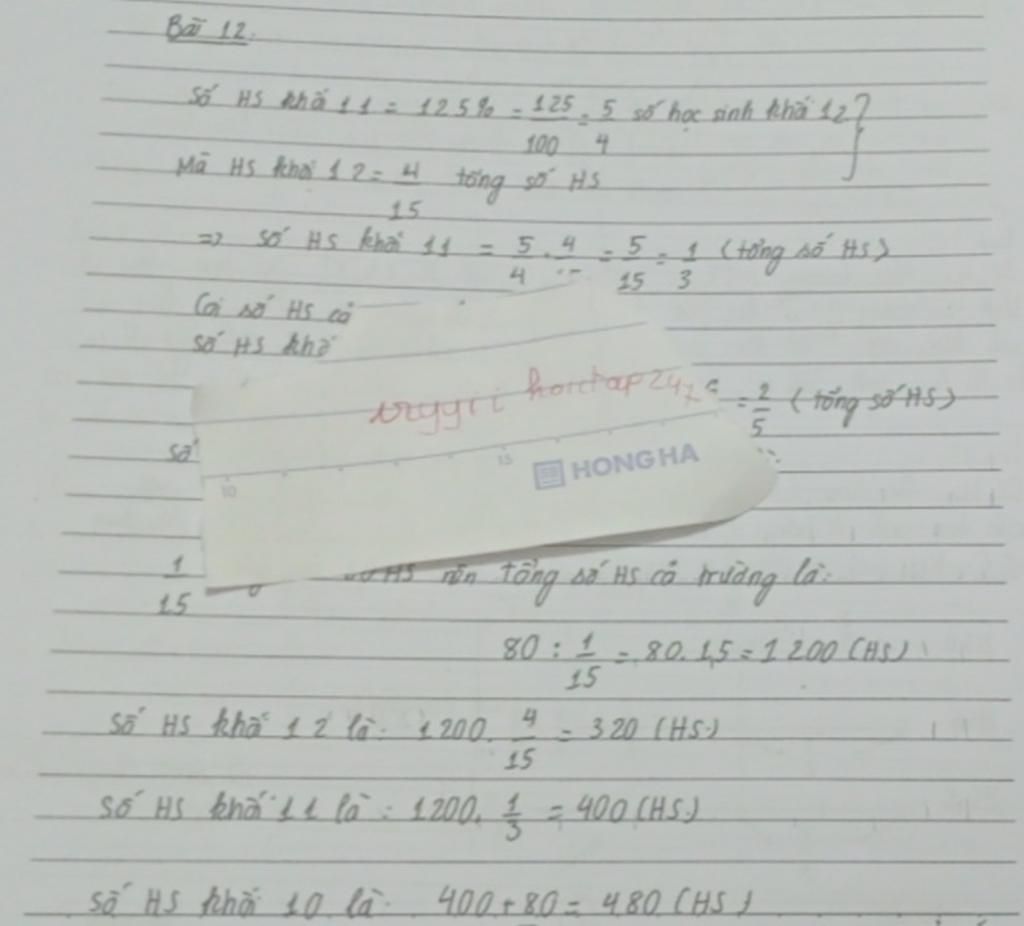 Bài 12.
Số HS khối 11 = 125% = 125/100 = 5/4 số học sinh khối 12
Mà HS khối 12 = 4/15 tổng số HS
=> số HS khối 11 = 5/4 . 4/ = 5/15 = 1/3 (tổng số HS)
Coi số HS cả
số HS khố
= 2/5 (tổng số HS)
số
10 15 HONG HA
1/15 HS nên tổng số HS cả trường là:
80 : 1/15 = 80.15 = 1200 (HS)
số HS khối 12 là: 1200. 4/15 = 320 (HS)
số HS khối 11 là: 1200. 1/3 = 400 (HS)
số HS khối 10 là: 400 + 80 = 480 (HS)